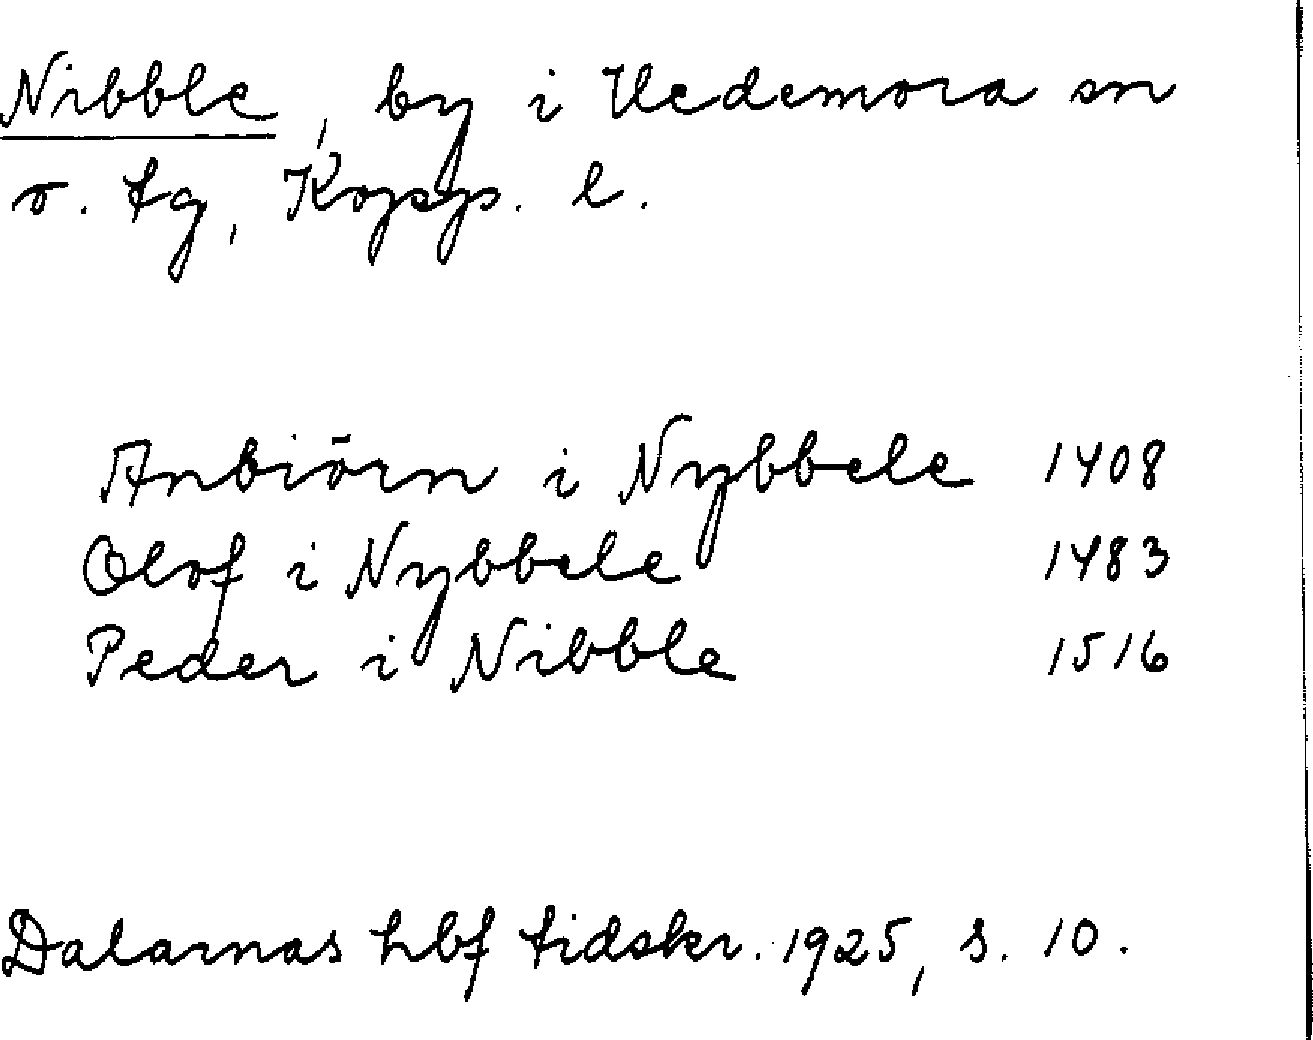 Nibble, by i Hedemora sn
o. tg, Kopp. l.
Anbiörn i Nybbele 1408
Olof i Nybbele 1483
Peder i Nibble 1516
Dalarnas hbf tidskr. 1925, s. 10.